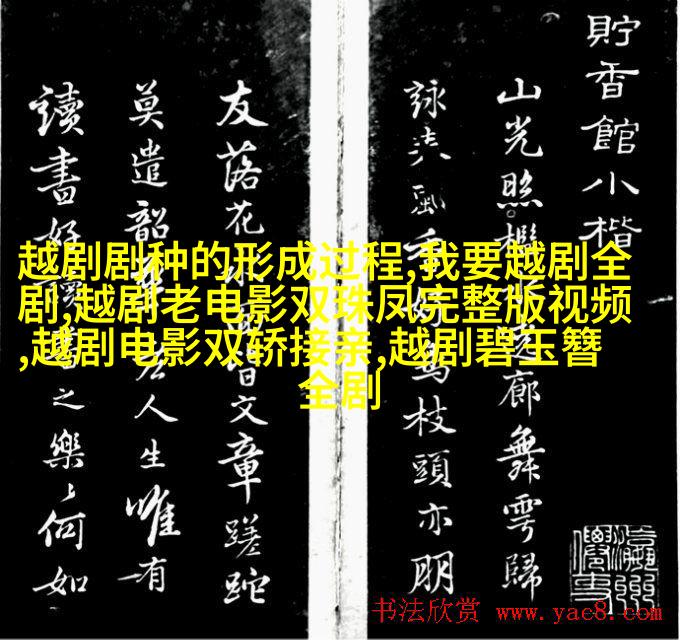 越剧剧种的形成过程,我要越剧全
剧,越剧老电影双珠凤完整版视频
,越剧电影双轿接亲,越剧碧玉簪
全剧
貯香館小楷
山光照檻遶廊舞雩歸
詠春風好鳥枝頭亦朋
友落花水皆文章蹉跎
莫遣韶老人生唯有
讀書好讀書之樂〻何如
书法欣赏 www.yac8.com